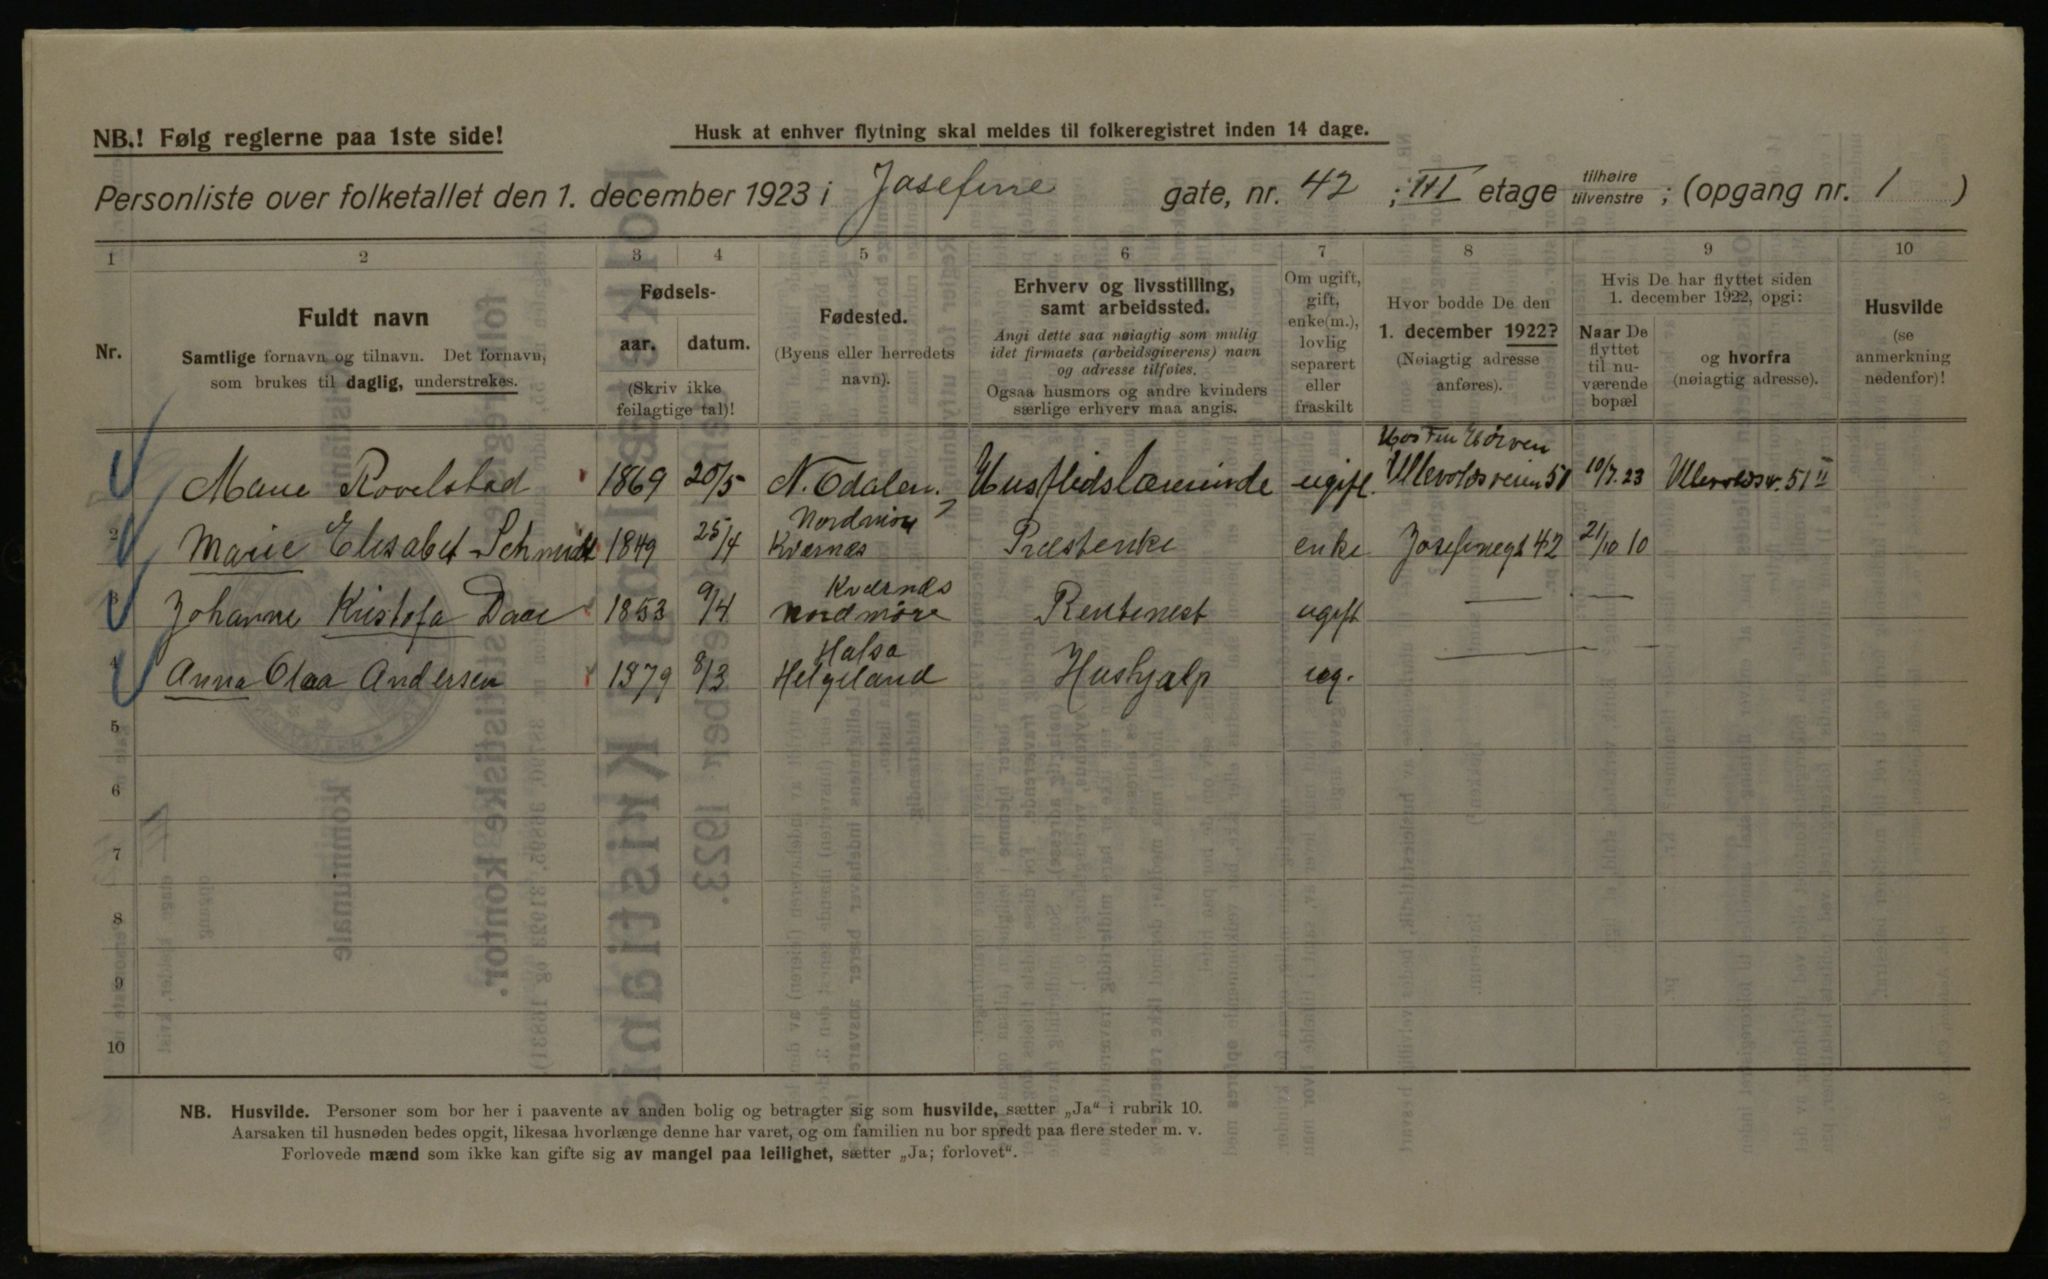 NB.! Følg reglerne paa 1ste side!
Husk at enhver flytning skal meldes til folkeregistret inden 14 dage.
Personliste over folketallet den 1. december 1923 i Josefine gate, nr. 42 ; III etage tilhøire tilvenstre ; (opgang nr. 1 )
1 2 3 4 5 6 7 8 9 10
Nr.
Fuldt navn
Samtlige fornavn og tilnavn. Det fornavn,
som brukes til daglig, understrekes.
Fødsels-
aar. datum.
(Skriv ikke
feilagtige tal)!
Fødested.
(Byens eller herredets
navn).
Erhverv og livsstilling,
samt arbeidssted.
Angi dette saa nøiagtig som mulig
idet firmaets (arbeidsgiverens) navn
og adresse tilføies.
Ogsaa husmors og andre kvinders
særlige erhverv maa angis.
Om ugift,
gift,
enke(m.),
lovlig
separert
eller
fraskilt
Hvor bodde De den
1. december 1922?
(Nøiagtig adresse
anføres).
Hvis De har flyttet siden
1. december 1922, opgi:
Naar De
flyttet
til nu-
værende
bopæl
og hvorfra
(nøiagtig adresse).
Husvilde
(se
anmerkning
nedenfor)!
Hos
Marie Rovelstad 1869 20/5 N. Odalen. Husflidslærerinde ugift. Ullevoldsveien 51 10/7.23 Ullevoldsv. 51 II
Nordmøre
2 Marie Elisabet Schmidt 1849 25/4 Kværnæs Præstenke enke Josefinegt 42 21/10 10
Kværnæs
3 Johanne Kristofa Daae 1853 9/4 Nordmøre Rentenest ugift — " —
Halsa
4 Anna Olaa Andersen 1879 8/3 Helgeland Hushjælp ug.
5
6
7
8
9
10
NB. Husvilde. Personer som bor her i paavente av anden bolig og betragter sig som husvilde, sætter „Ja“ i rubrik 10.
Aarsaken til husnøden bedes opgit, likesaa hvorlænge denne har varet, og om familien nu bor spredt paa flere steder m. v.
Forlovede mænd som ikke kan gifte sig av mangel paa leilighet, sætter „Ja; forlovet“.